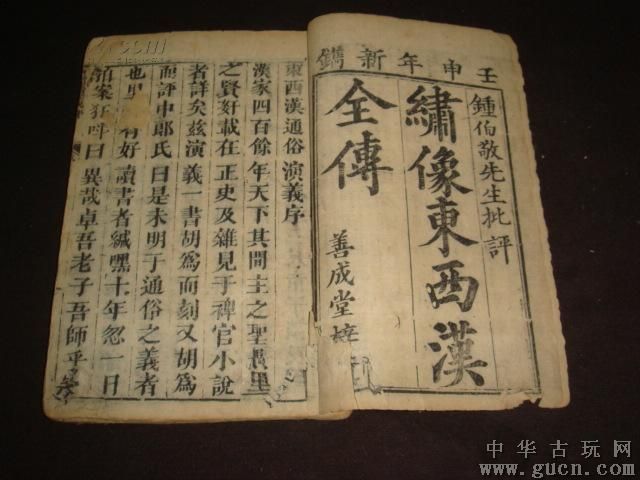 壬申年新鐫
鍾伯敬先生批評
繡像東西漢
全傳
善成堂梓
東西漢通俗演義序
漢家四百餘年天下其間主之聖愚里
之賢奸載在正史及雜見于稗官小說
者詳矣茲演義一書胡為而刻又胡為
而評中郎氏曰是未明于通俗之義者
也里有好讀書者緘嘿十年忽一日
案狂叫曰異哉卓吾老子吾師乎
中华古玩网
www.gucn.com